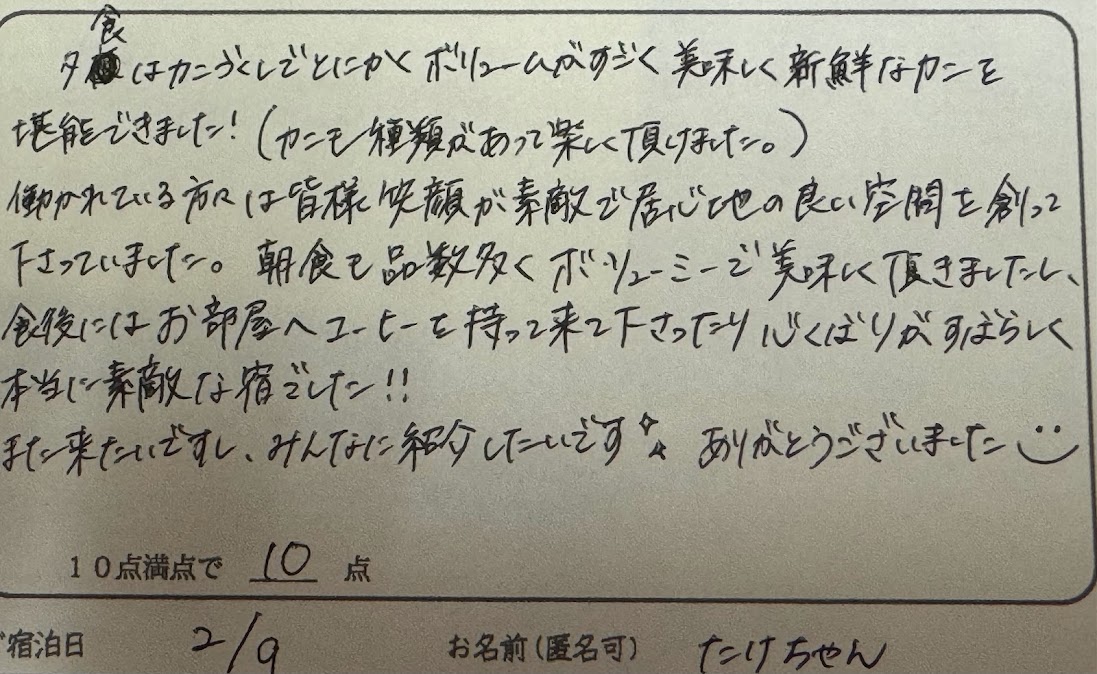 夕食はカニづくしでとにかくボリュームがすごく美味しく新鮮なカニを
堪能できました!(カニも種類があって楽しく頂けました。)
働かれている方々は皆様笑顔が素敵で居心地の良い空間を創って
下さっていました。朝食も品数多くボリューミーで美味しく頂きましたし、
食後にはお部屋へコーヒーを持って来て下さったり心くばりがすばらしく
本当に素敵な宿でした!!
また来たいですし、みんなに紹介したいです ありがとうございました
10点満点で 10 点
宿泊日 2/9 お名前(匿名可) たけちゃん